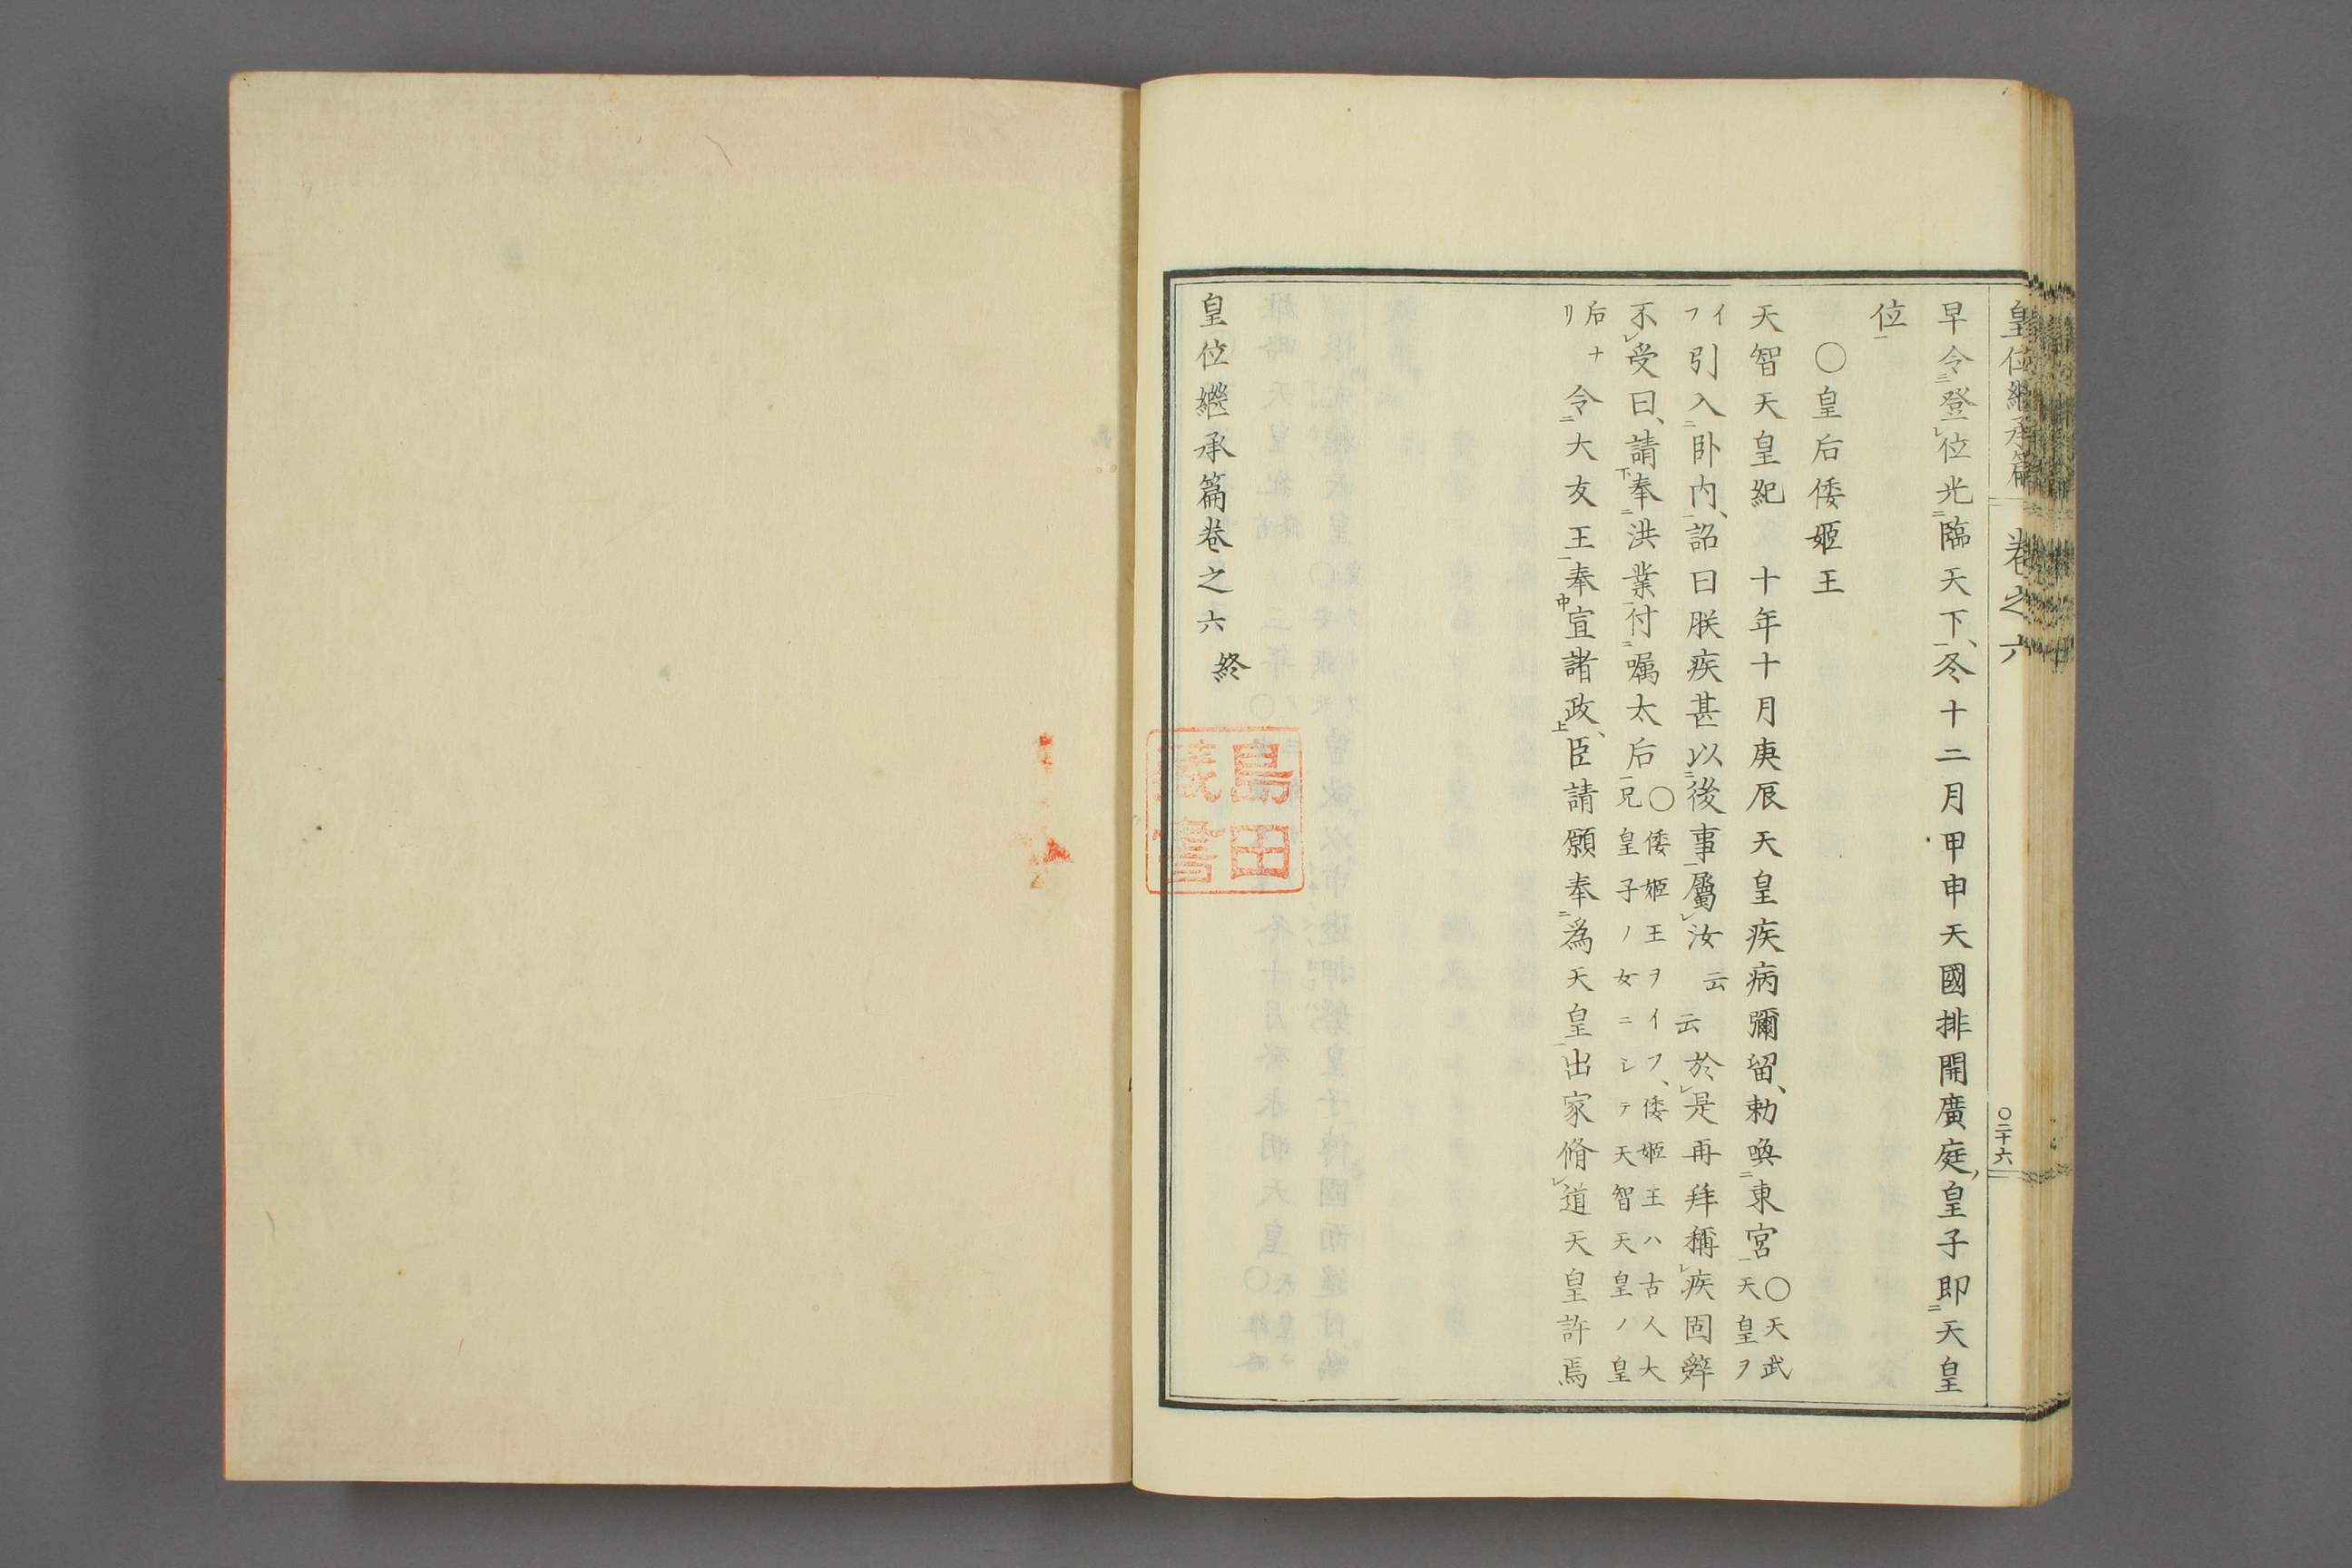 皇位繼承篇 卷之六 〇二十六
早令㆓登㆑位光㆓臨天下㆒、冬十二月甲申天國排開廣庭、皇子即㆓天皇
位㆒
〇皇后倭姬王
天智天皇紀 十年十月庚辰天皇疾病彌留、勅喚㆓東宮㆒〇天武天皇ヲ
イフ引入㆓臥内㆒、詔曰朕疾甚以㆓後事㆒屬㆑汝云云於㆑是再拜稱㆑疾固辭
不㆑受曰、請㆘奉㆓洪業㆒付㆓囑太后㆒〇倭姬王ヲイフ、倭姬王ハ古人大兄皇子ノ女ニシテ天智天皇ノ皇
后ナリ令㆓大友王㆒奉㆗宣諸政㆖、臣請願奉㆓爲天皇㆒出家脩㆑道天皇許焉
皇位繼承篇卷之六終
島田
藏書